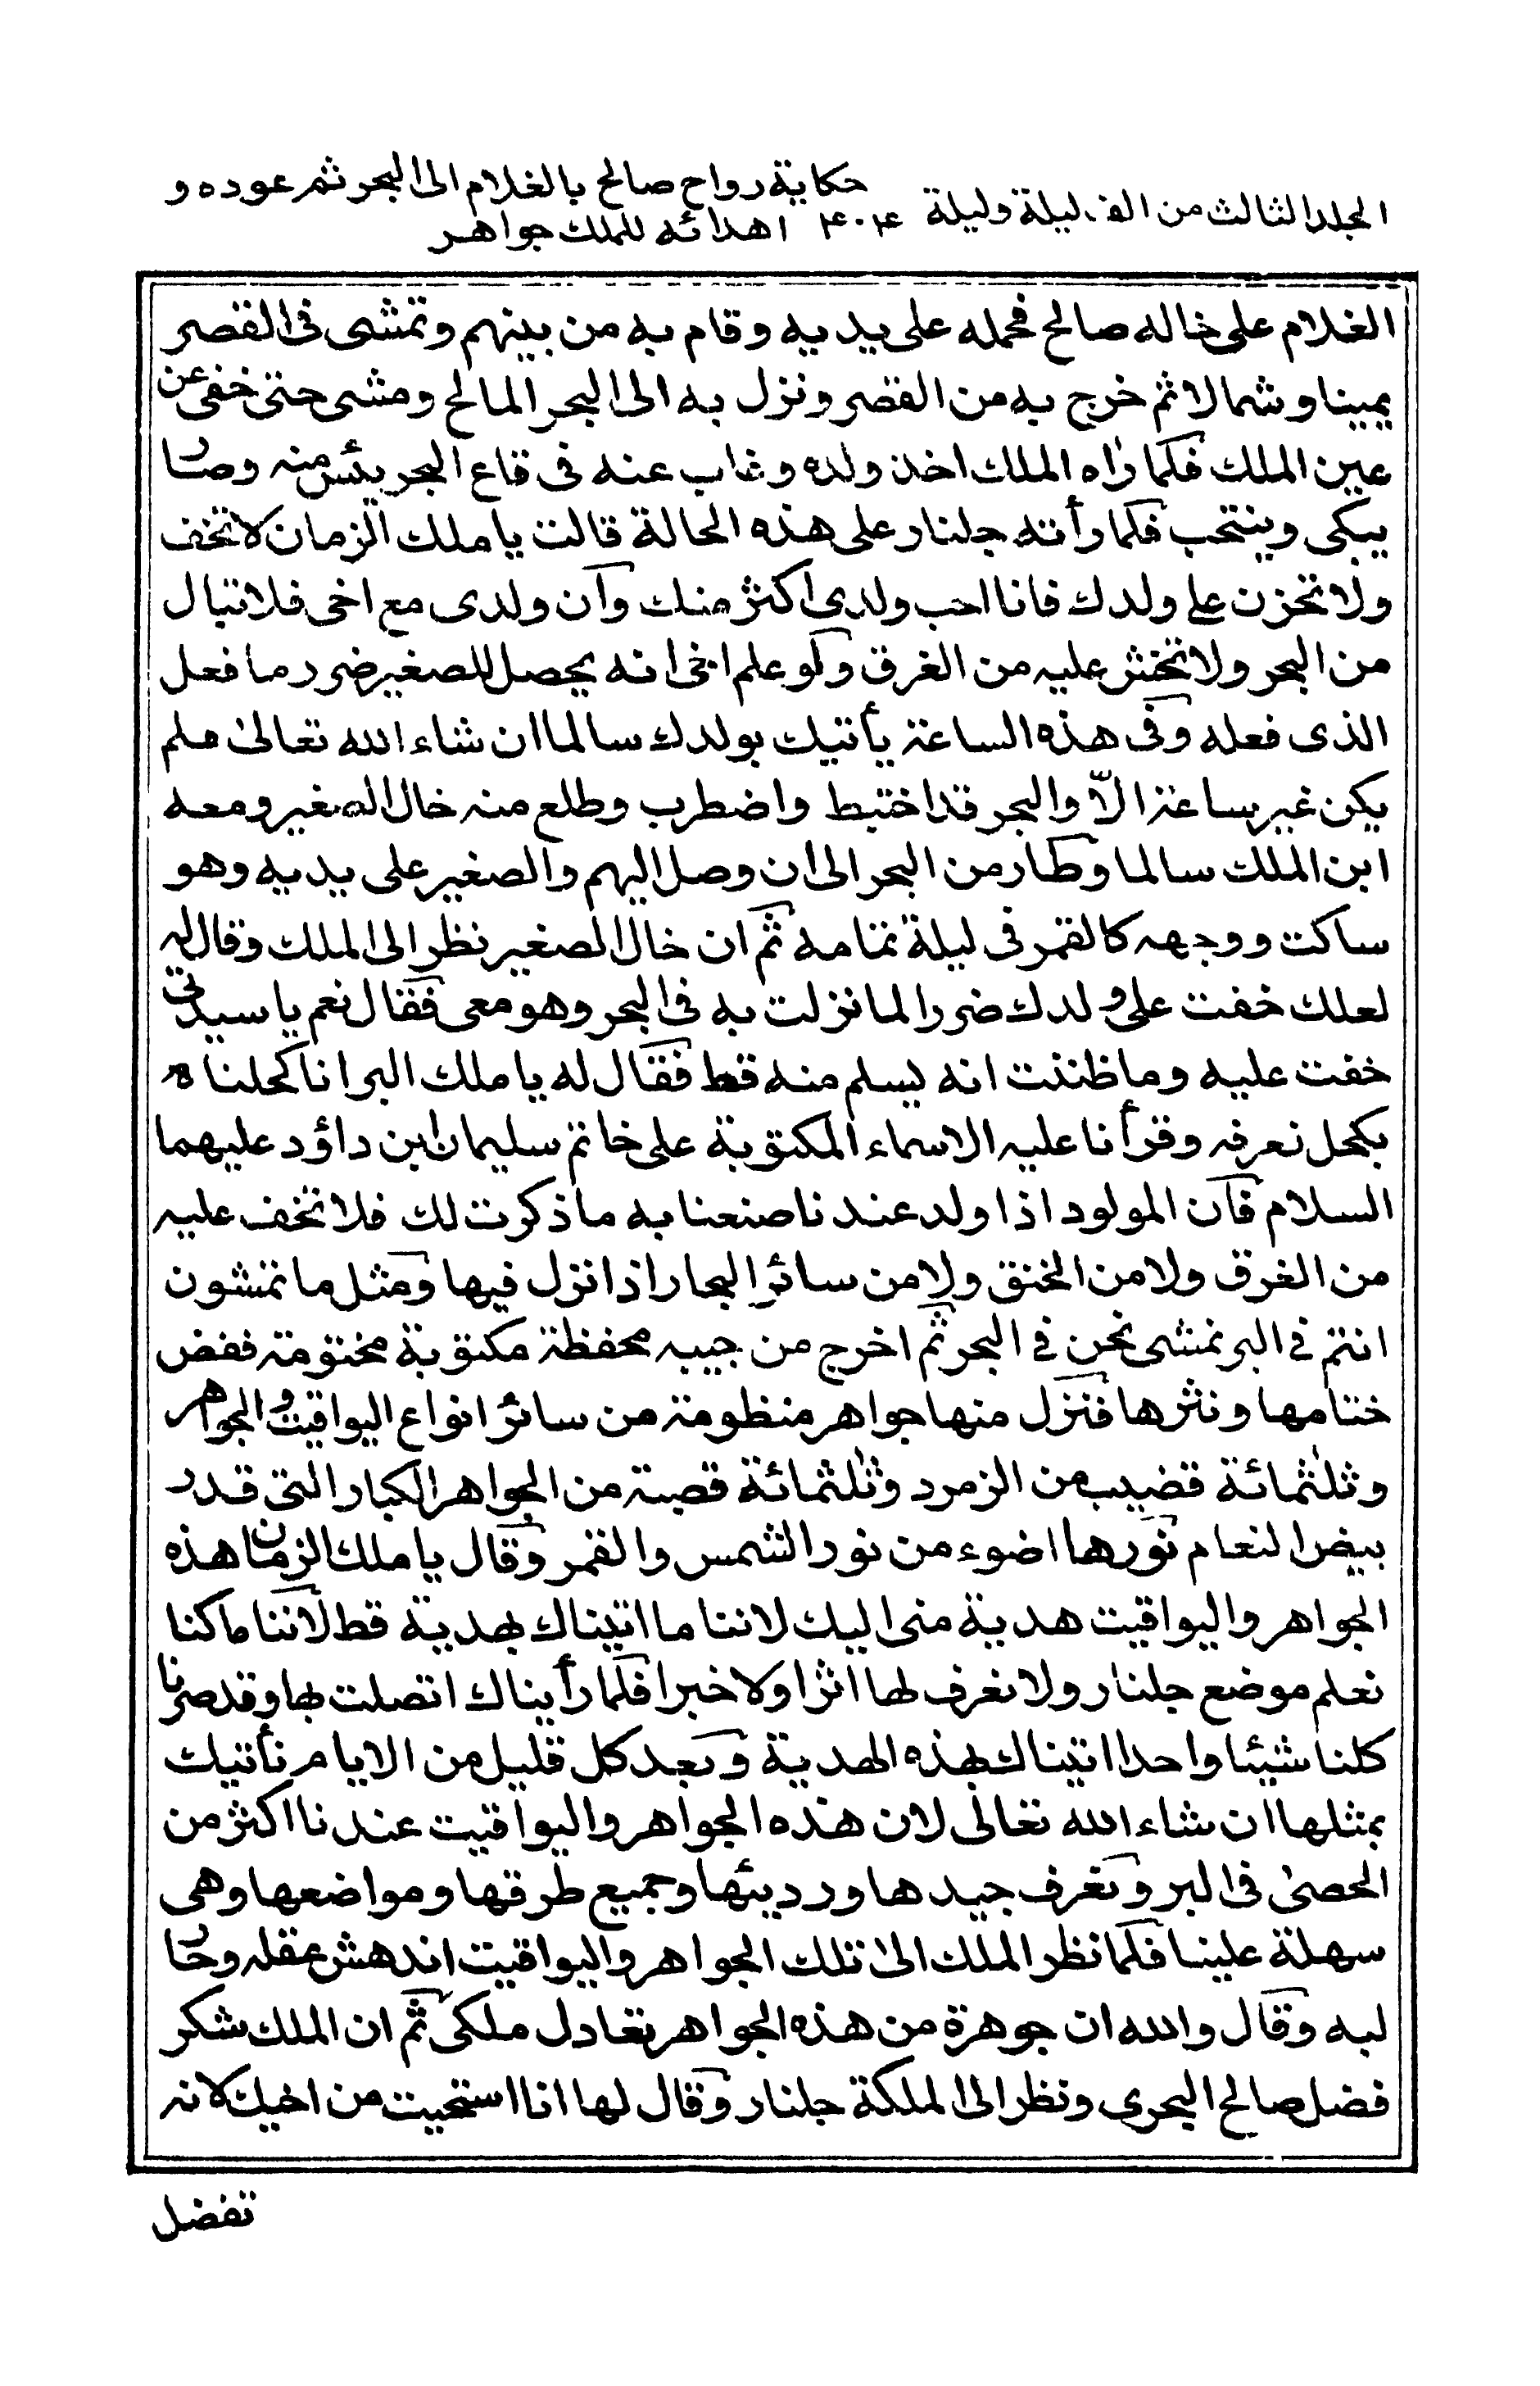 المجلد الثالث من الف ليلة وليلة ۴۰۴ حكاية رواح صالح بالغلام الى البحر ثم عوده و
اهدائه للملك جواهر
الغلام على خاله صالح فحمله على يديه وقام به من بينهم وتمشى فى القصر
يمينا وشمالا ثم خرج به من القصر ونزل به الى البحر المالح ومشى حتى خفى عن
عين الملك فلما رٰاه الملك اخذ ولده وغاب عنه فى قاع البحر يئس منه وصار
يبكى وينتحب فلما رأته جلنار على هذه الحالة قالت يا ملك الزمان لا تخف
ولا تحزن على ولدك فانا احب ولدى اكثر منك وان ولدى مع اخى فلا تبال
من البحر ولا تخش عليه من الغرق ولو علم اخى انه يحصل للصغير ضرر ما فعل
الذى فعله وفى هذه الساعة يأتيك بولدك سالما ان شاء الله تعالىٰ فلم
يكن غير ساعة الّا والبحر قد اختبط واضطرب وطلع منه خال الصغير ومعه
ابن الملك سالما وطار من البحر الى ان وصل اليهم والصغير على يديه وهو
ساكت ووجهه كالقمر فى ليلة تمامه ثم ان خال الصغير نظر الى الملك وقال له
لعلك خفت على ولدك ضررا لما نزلت به فى البحر وهو معى فقال نعم يا سيدى
خفت عليه وما ظننت انه يسلم منه قط فقال له يا ملك البر انا كحلناه
بكحل نعرفه وقرأنا عليه الاسماء المكتوبة على خاتم سليمان ابن داؤد عليهما
السلام فان المولود اذا ولد عندنا صنعنا به ما ذكرت لك فلا تخف عليه
من الغرق ولا من الخنق ولا من سائر البحار اذا نزل فيها ومثل ما تمشون
انتم فى البر نمشى نحن فى البحر ثم اخرج من جيبه محفظة مكتوبة مختومة ففض
ختامها ونثرها فنزل منها جواهر منظومة من سائر انواع اليواقيت والجواهر
وثلٰثمائة قضيب من الزمرد وثلٰثمائة قصبة من الجواهر الكبار التى قدر
بيض النعام نورها اضوء من نور الشمس والقمر وقال يا ملك الزمان هذه
الجواهر واليواقيت هدية منى اليك لاننا ما اتيناك بهدية قط لاننا ما كنا
نعلم موضع جلنار ولا نعرف لها اثرا ولا خبرا فلما رأيناك اتصلت بها وقد صرنا
كلنا شيئا واحدا اتيناك بهذه الهدية وبعد كل قليل من الايام نأتيك
بمثلها ان شاء الله تعالى لان هذه الجواهر واليواقيت عندنا اكثر من
الحصىٰ فى البر ونعرف جيدها ورديئها وجميع طرقها ومواضعها وهى
سهلة علينا فلما نظر الملك الىٰ تلك الجواهر واليواقيت اندهش عقله وحار
لبه وقال والله ان جوهرة من هذه الجواهر تعادل ملكى ثم ان الملك شكر
فضل صالح البحرى ونظر الى الملكة جلنار وقال لها انا استحيت من اخيك لانه
تفضل